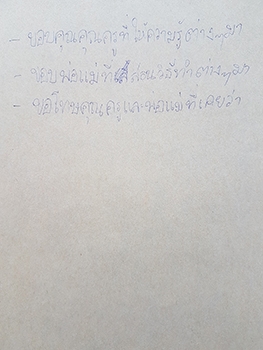 - ขอบคุณคุณครูที่ให้ความรู้ต่างๆมา
- ขอบพ่อแม่ที่สอนวิธีทำต่างๆมา
- ขอโทษคุณครูและพ่อแม่ที่เคยว่า